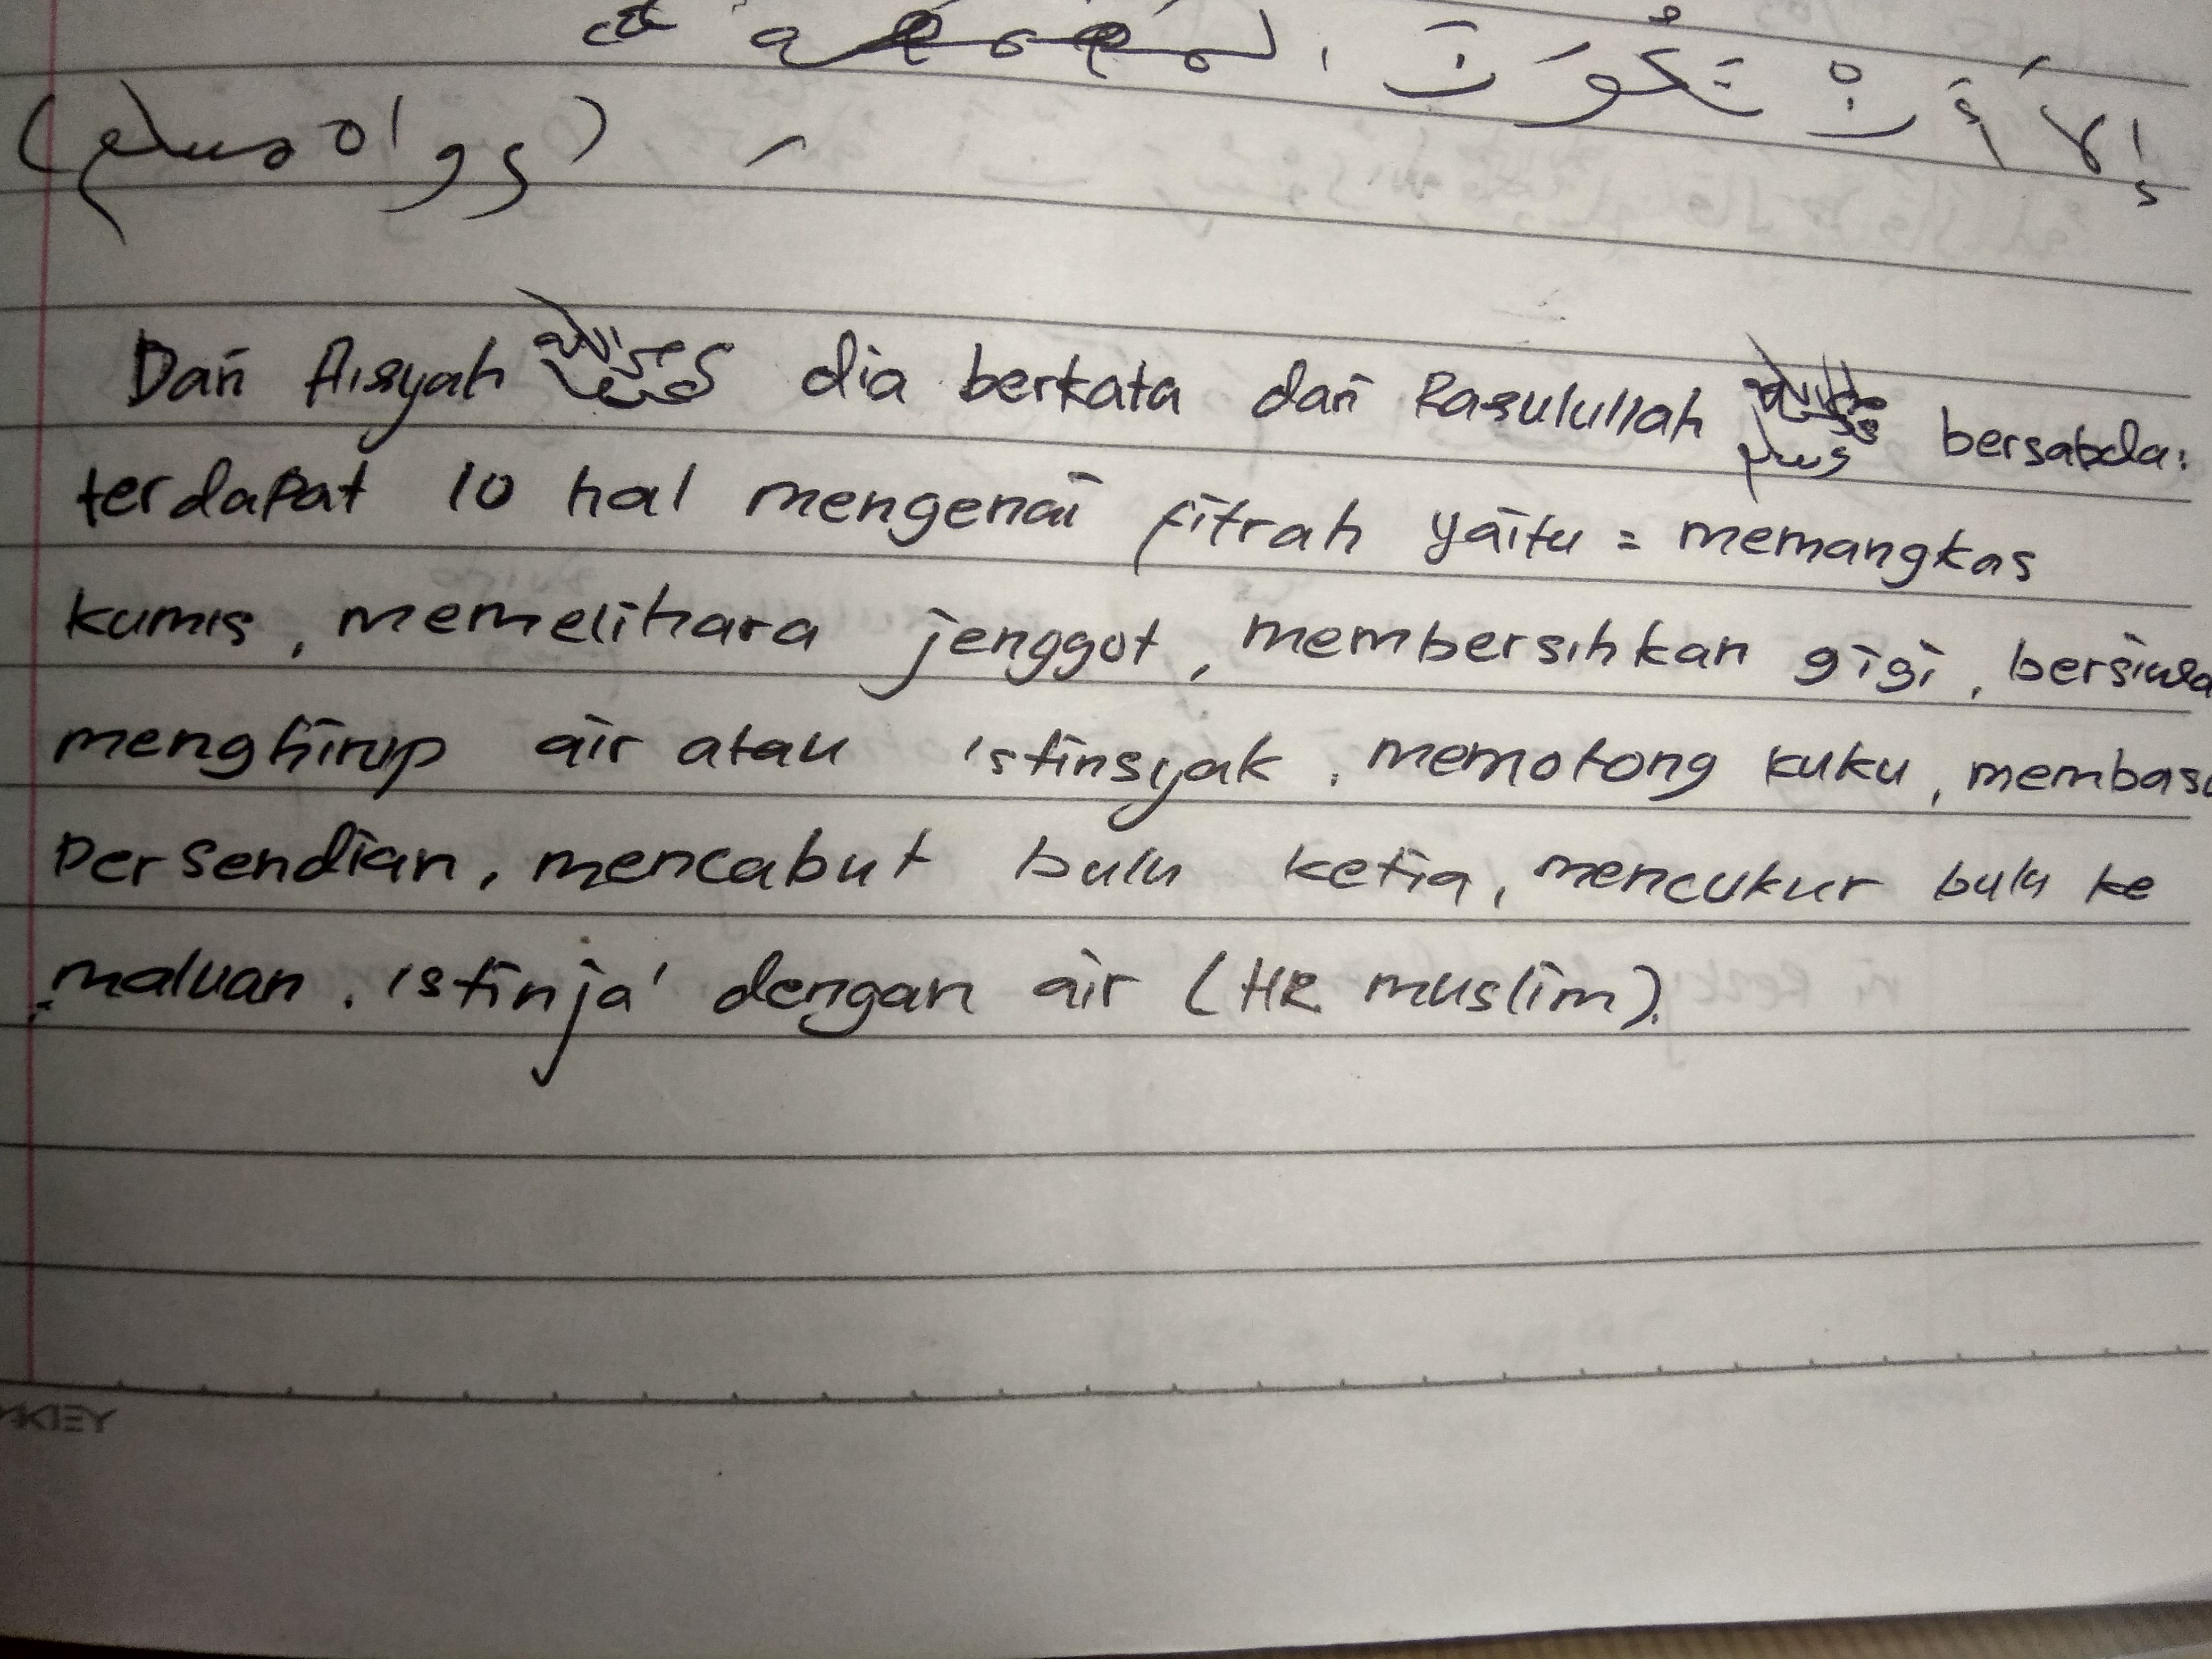 إِلاَ أَنْ تَكُوَنَ المضمضة
(رواه مسلم)
Dari Aisyah رضي الله عنها dia berkata dari Rasulullah صلى الله عليه وسلم bersabda:
terdapat 10 hal mengenai fitrah yaitu = memangkas
kumis, memelihara jenggot, membersihkan gigi, bersiwa
menghirup air atau istinsyak, memotong kuku, membasu
Persendian, mencabut bulu ketia, mencukur bulu ke
maluan, istinja' dengan air (HR muslim).